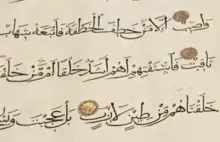 واصب الا من خطف الخطفة فاتبعه شهاب
ثاقب فاستفتهم اهم اشد خلقا ام من خلقنا
خلقناهم من طين لازب بل عجبت و